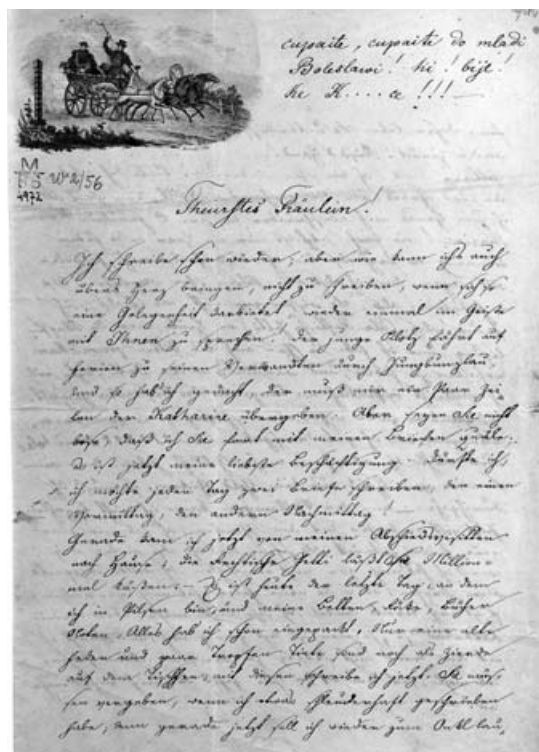 cupaite, cupaite do mladi
Boleslawi! hi! bijt!
he K....ce!!!—
M
W 2/56
4972
Theuerstes Fräulein!
Ich schreibe schon wieder, aber wie kann ichs auch
übers Herz bringen, nicht zu schreiben, wenn sich so
eine Gelegenheit darbietet, wieder einmal im Geiste
mit Ihnen zu sprechen! Der junge Klotz fährt auf
Ferien zu seinen Verwandten durch Jungbunzlau.
Und so hab ich gedacht, der muß mir ein Paar Zei-
len der Katharine übergeben. Aber seyen Sie nicht
böse, daß ich Sie fort mit meinen Briefen quäle;
es ist jetzt meine liebste Beschäftigung. Dürfte ich,
ich möchte jeden Tag zwei Briefe schreiben, den einen
Vormittag, den andern Nachmittag!
Gerade kam ich jetzt von meinen Abschiedsvisitten
nach Hause; die Netti läßt Sie Million-
mal küssen. – Es ist heute der letzte Tag, an dem
ich in Pilsen bin, und meine Betten, Bücher
Noten, Alles hab ich schon eingepackt. Nur eine alte
Feder und paar Tropfen Tinte sind noch als Zierde
auf dem Tische, mit diesen schreibe ich jetzt. Sie müs-
sen vergeben, wenn ich etwas schleuderhaft geschrieben
habe, denn gerade jetzt soll ich wieder zum Onkl lau,